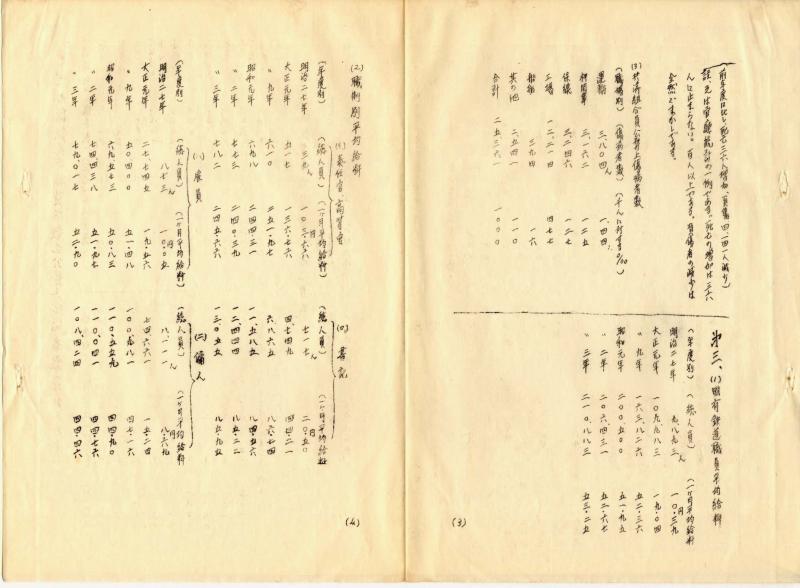 前年度に比し死亡三六人増加、負傷四、四一人減少)
註、元は官廳統計の一例である。死亡の増加は三六
人に止まらない。百人以上である。負傷者の減少は
全然ごまかしである。
(3) 共済組合員公務上傷病者数
(職場別) (傷病者数) (千人に対する0/00)
運輸 三、八〇四人 一四四
機関車 三、一六二 一二五
保線 三、二四六 一二七
工場 一二、四五四 四七七
船舶 三九四 一六
其の他 二、五四一 一一〇
合計 二五三六一 一〇〇〇
第三、(1)国有鉄道職員平均給料
(年度別) (総人員) (一ヶ月平均給料)
明治二七年 九、八九三人 一〇・三九円
大正元年 一〇九、九八三 一九・〇四
〃九年 一六三、八二六 五二・三六
昭和元年 二〇〇五〇〇 五一・九五
〃二年 二〇六、四三一 五二・六七
〃三年 二一〇、八八三 五三・二五
(3)
(2) 職制別平均給料
(イ) 奏任官、高等官
(年度別) (総人員) (一ヶ月平均給料)
明治二七年 三九人 一〇三・〇六円
大正元年 五一七 一三六・七六
〃九年 六一〇 二五五・一七
昭和元年 六九八 二四四・三一
〃二年 七七三 二四〇・三九
〃三年 七八二 二四五・六六
(ロ) 書記
(総人員) (一ヶ月平均給料)
七一七人 二〇・五〇円
四、七四九 四四・二一
六、八六五 八六・七四
一一、五八五 八四・五六
一二、四〇四 八五・二二
一三、〇五二 八五・九五
(ハ) 雇員
(年度別) (総人員) (一ヶ月平均給料)
明治二七年 八七三人 一〇・〇五円
大正元年 二七、七四五 一九・五六
〃九年 五〇四〇〇 五一・四八
昭和元年 六九、五七三 五〇・八三
〃二年 七四四三八 五一・九七
〃三年 七九〇一七 五二・九〇
(ニ) 傭人
(総人員) (一ヶ月平均給料)
八、一一一人 八・三九円
七四六六一 一五・二四
一〇〇、九八一 四七・一六
一一〇、五五九 四四・九〇
一一〇、〇〇四一 四四・七六
一〇八、四二四 四四・四六
(4)